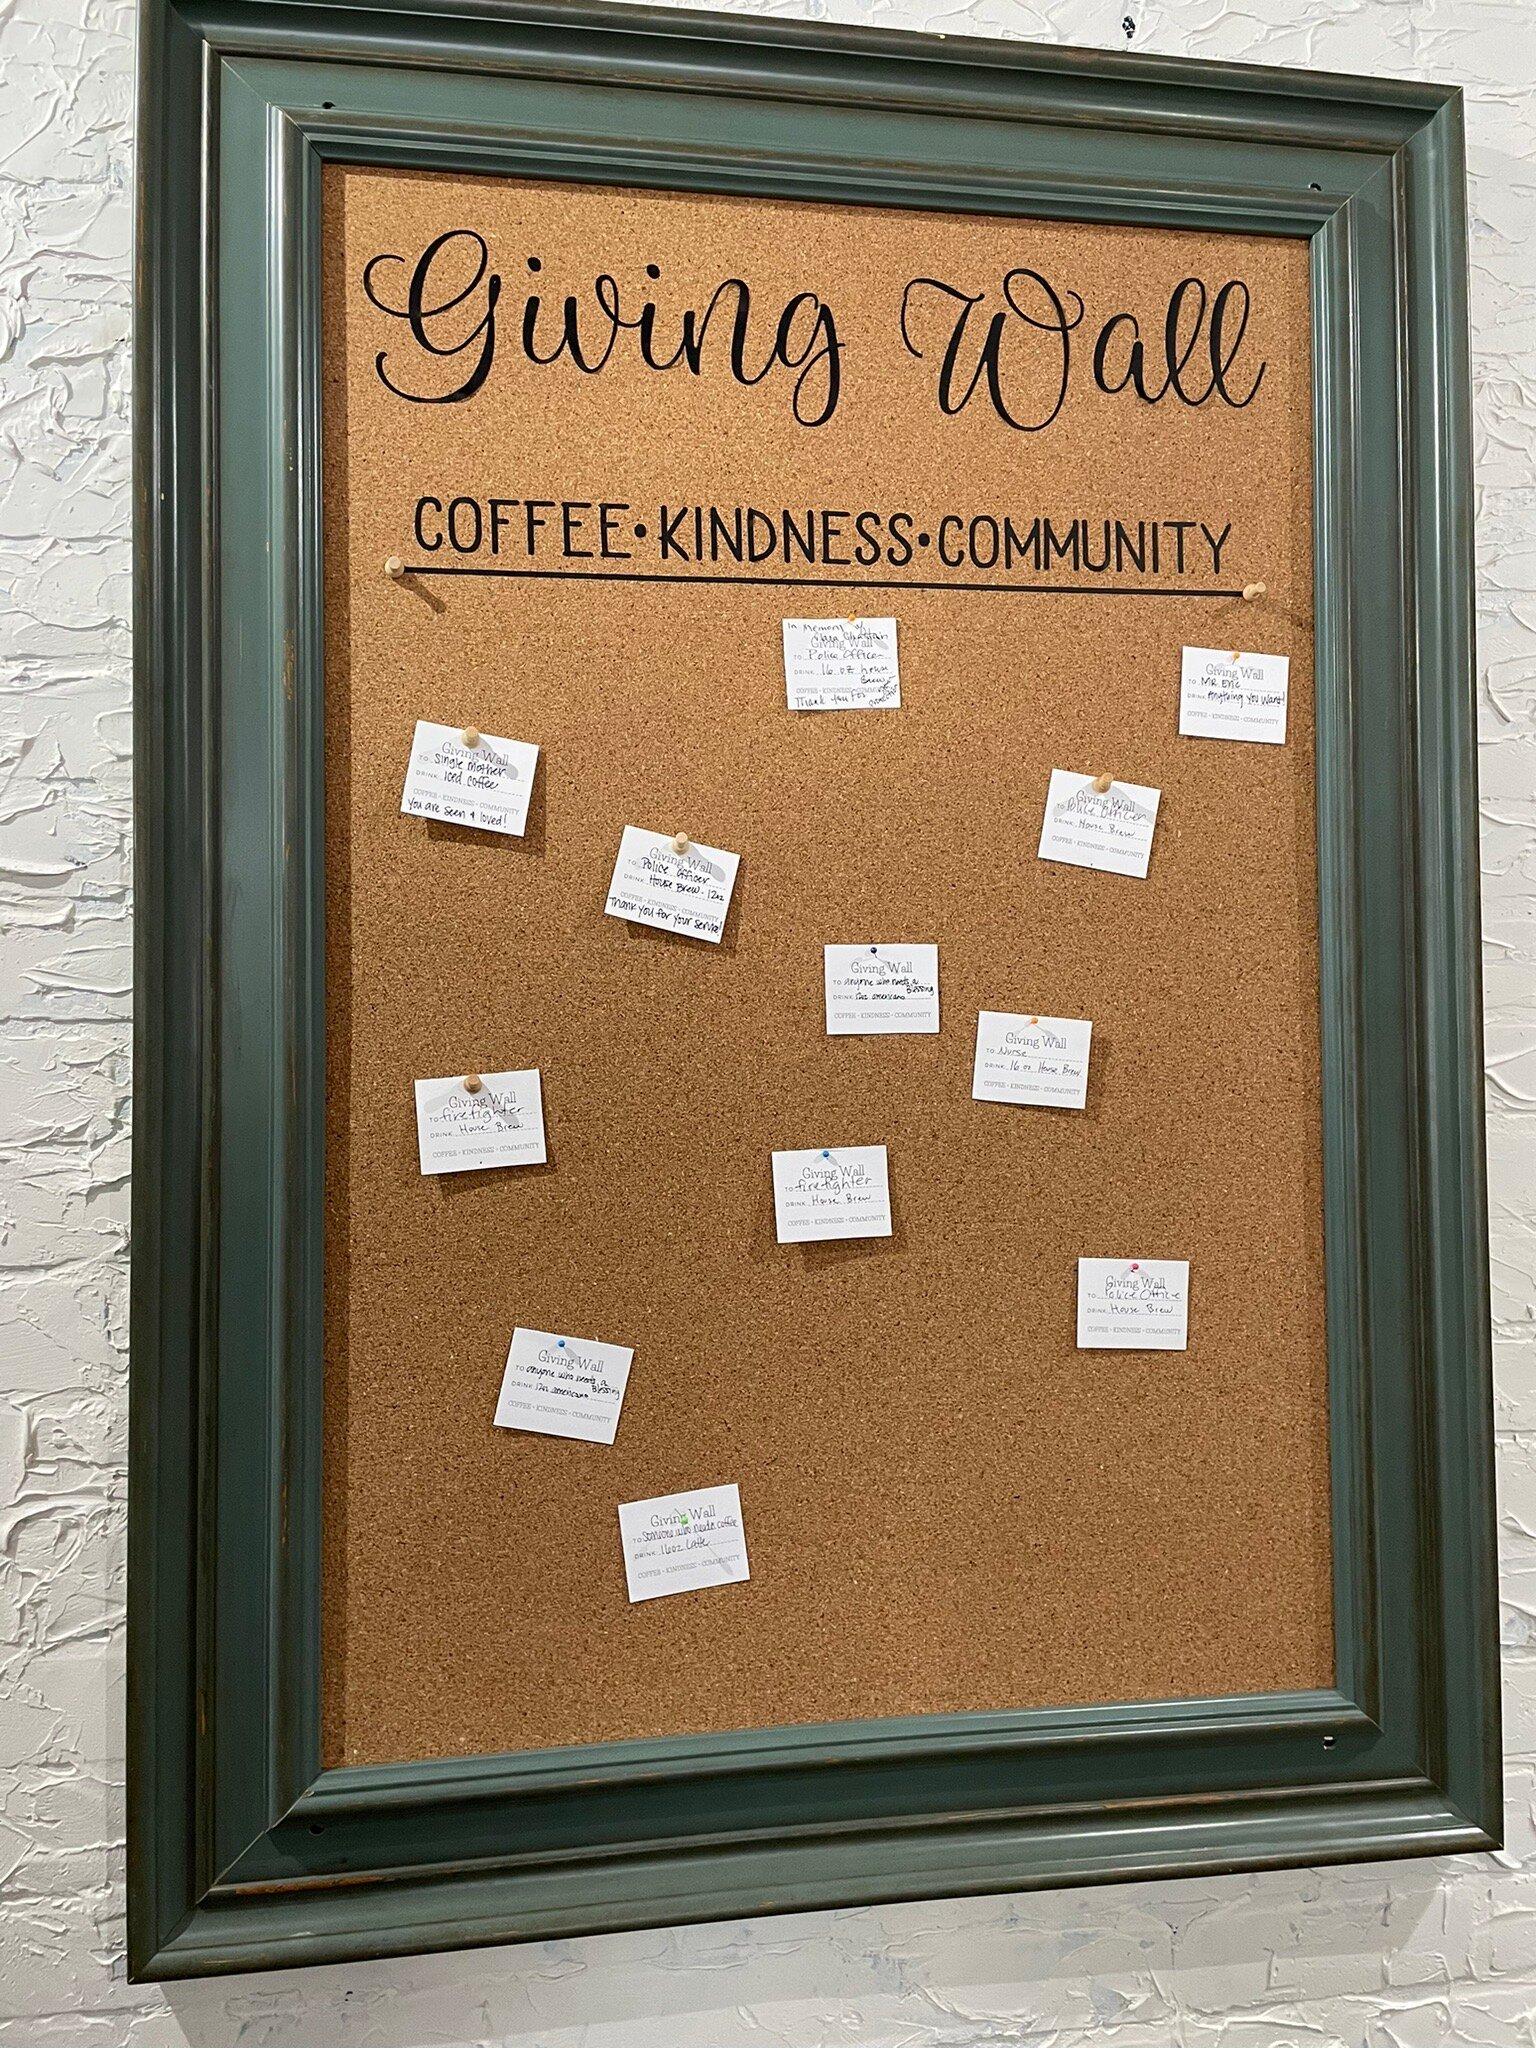 Giving Wall
COFFEE•KINDNESS•COMMUNITY
In Memory of
Giving Wall
TO Police Officer
DRINK 16 oz house
Brew
COFFEE • KINDNESS • COMMUNITY
Thank you for
Giving Wall
TO Mr Eric
DRINK Anything you want!
COFFEE • KINDNESS • COMMUNITY
Giving Wall
TO Single mother
DRINK Iced coffee
COFFEE • KINDNESS • COMMUNITY
you are seen & loved!
Giving Wall
TO Police Officer
DRINK House Brew
COFFEE • KINDNESS • COMMUNITY
Giving Wall
TO Police Officer
DRINK House Brew - 12oz
COFFEE • KINDNESS • COMMUNITY
Thank you for your service!
Giving Wall
TO anyone who needs a
Blessing
DRINK 12oz americano
COFFEE • KINDNESS • COMMUNITY
Giving Wall
TO Nurse
DRINK 16 oz House Brew
COFFEE • KINDNESS • COMMUNITY
Giving Wall
TO firefighter
DRINK House Brew
COFFEE • KINDNESS • COMMUNITY
Giving Wall
TO firefighter
DRINK House Brew
COFFEE • KINDNESS • COMMUNITY
Giving Wall
TO Police Office
DRINK House Brew
COFFEE • KINDNESS • COMMUNITY
Giving Wall
TO anyone who needs a
Blessing
DRINK 12oz americano
COFFEE • KINDNESS • COMMUNITY
Giving Wall
TO Someone who needs coffee
DRINK 16oz Latte
COFFEE • KINDNESS • COMMUNITY